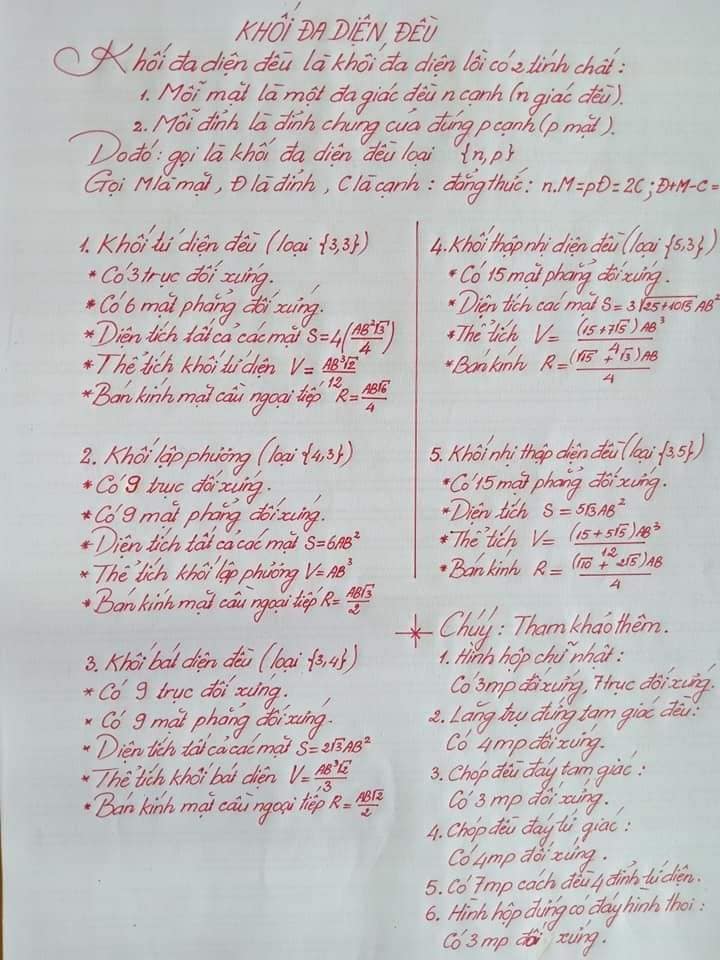 KHỐI ĐA DIỆN ĐỀU
Khối đa diện đều là khối đa diện lồi có 2 tính chất:
1. Mỗi mặt là một đa giác đều n cạnh (n giác đều).
2. Mỗi đỉnh là đỉnh chung của đúng p cạnh (p mặt).
Do đó: gọi là khối đa diện đều loại {n,p}
Gọi M là mặt, Đ là đỉnh, C là cạnh: đẳng thức: n.M=pĐ=2C; Đ+M-C=
1. Khối tứ diện đều (loại {3,3})
* Có 3 trục đối xứng.
* Có 6 mặt phẳng đối xứng.
* Diện tích tất cả các mặt S=4(AB²√3/4)
* Thể tích khối tứ diện V= AB³√2/12
* Bán kính mặt cầu ngoại tiếp R= AB√6/4
2. Khối lập phương (loại {4,3})
* Có 9 trục đối xứng.
* Có 9 mặt phẳng đối xứng.
* Diện tích tất cả các mặt S=6AB²
* Thể tích khối lập phương V=AB³
* Bán kính mặt cầu ngoại tiếp R= AB√3/2
3. Khối bát diện đều (loại {3,4})
* Có 9 trục đối xứng.
* Có 9 mặt phẳng đối xứng.
* Diện tích tất cả các mặt S=2√3AB²
* Thể tích khối bát diện V= AB³√2/3
* Bán kính mặt cầu ngoại tiếp R= AB√2/2
4. Khối thập nhị diện đều (loại {5,3})
* Có 15 mặt phẳng đối xứng.
* Diện tích các mặt S=3√25+10√5 AB²
* Thể tích V= (15+7√5)AB³/4
* Bán kính R= (√15+√3)AB/4
5. Khối nhị thập diện đều (loại {3,5})
* Có 15 mặt phẳng đối xứng.
* Diện tích S=5√3AB²
* Thể tích V= (15+5√5)AB³/12
* Bán kính R= (√10+2√5)AB/4
* Chú ý: Tham khảo thêm.
1. Hình hộp chữ nhật:
Có 3mp đối xứng, 7 trục đối xứng.
2. Lăng trụ đứng tam giác đều:
Có 4mp đối xứng.
3. Chóp đều đáy tam giác:
Có 3 mp đối xứng.
4. Chóp đều đáy tứ giác:
Có 4mp đối xứng.
5. Có 7mp cách đều 4 đỉnh tứ diện.
6. Hình hộp đứng có đáy hình thoi:
Có 3 mp đối xứng.